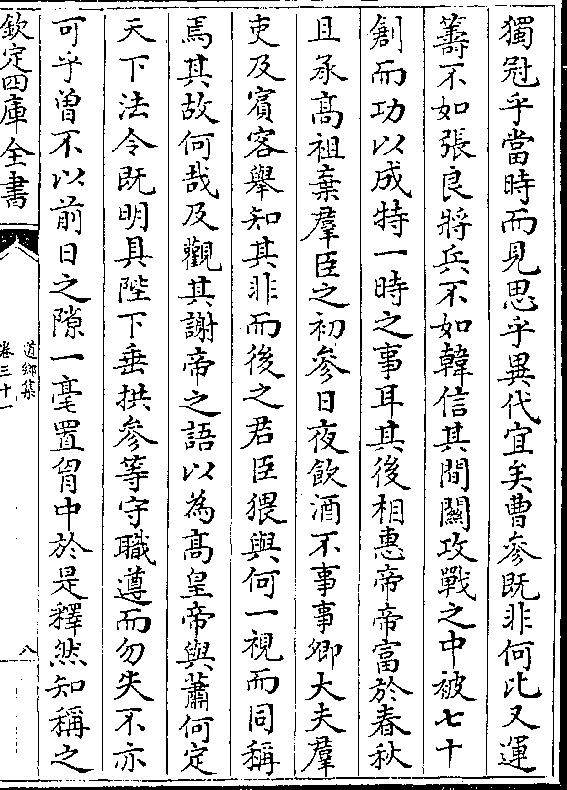 獨冠乎當時而見思乎異代宜矣曹參既非何比又運
籌不如張良將兵不如韓信其間關攻戰之中被七十
創而功以成特一時之事耳其後相惠帝帝富於春秋
且承高祖棄羣臣之初參日夜飲酒不事事卿大夫羣
吏及賓客舉知其非而後之君臣猥與何一視而同稱
焉其故何哉及觀其謝帝之語以為高皇帝與蕭何定
天下法令既明具陛下垂拱參等守職遵而勿失不亦
可乎曽不以前日之隙一毫置胷中於是釋然知稱之
欽定四庫全書
道鄉集
卷三十一
八